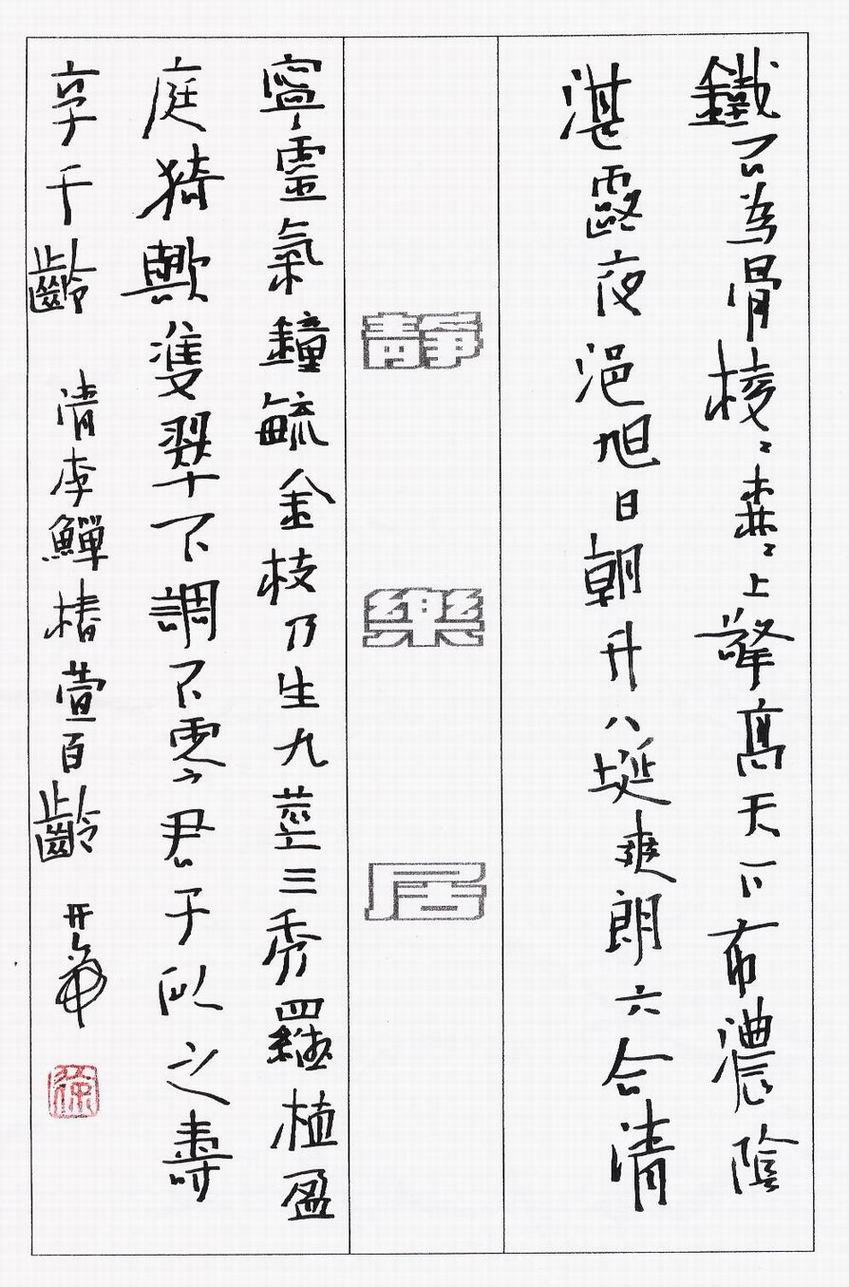 鐵石為骨棱〻森〻上擎高天下布濃陰
湛露夜浥旭日朝升八埏爽朗六合清
靜樂居
寧靈氣鐘毓金枝乃生九莖三秀羅植盈
庭猗歟雙翠不調不零君子似之壽
享千齡 清李鱓椿萱百齡
徐